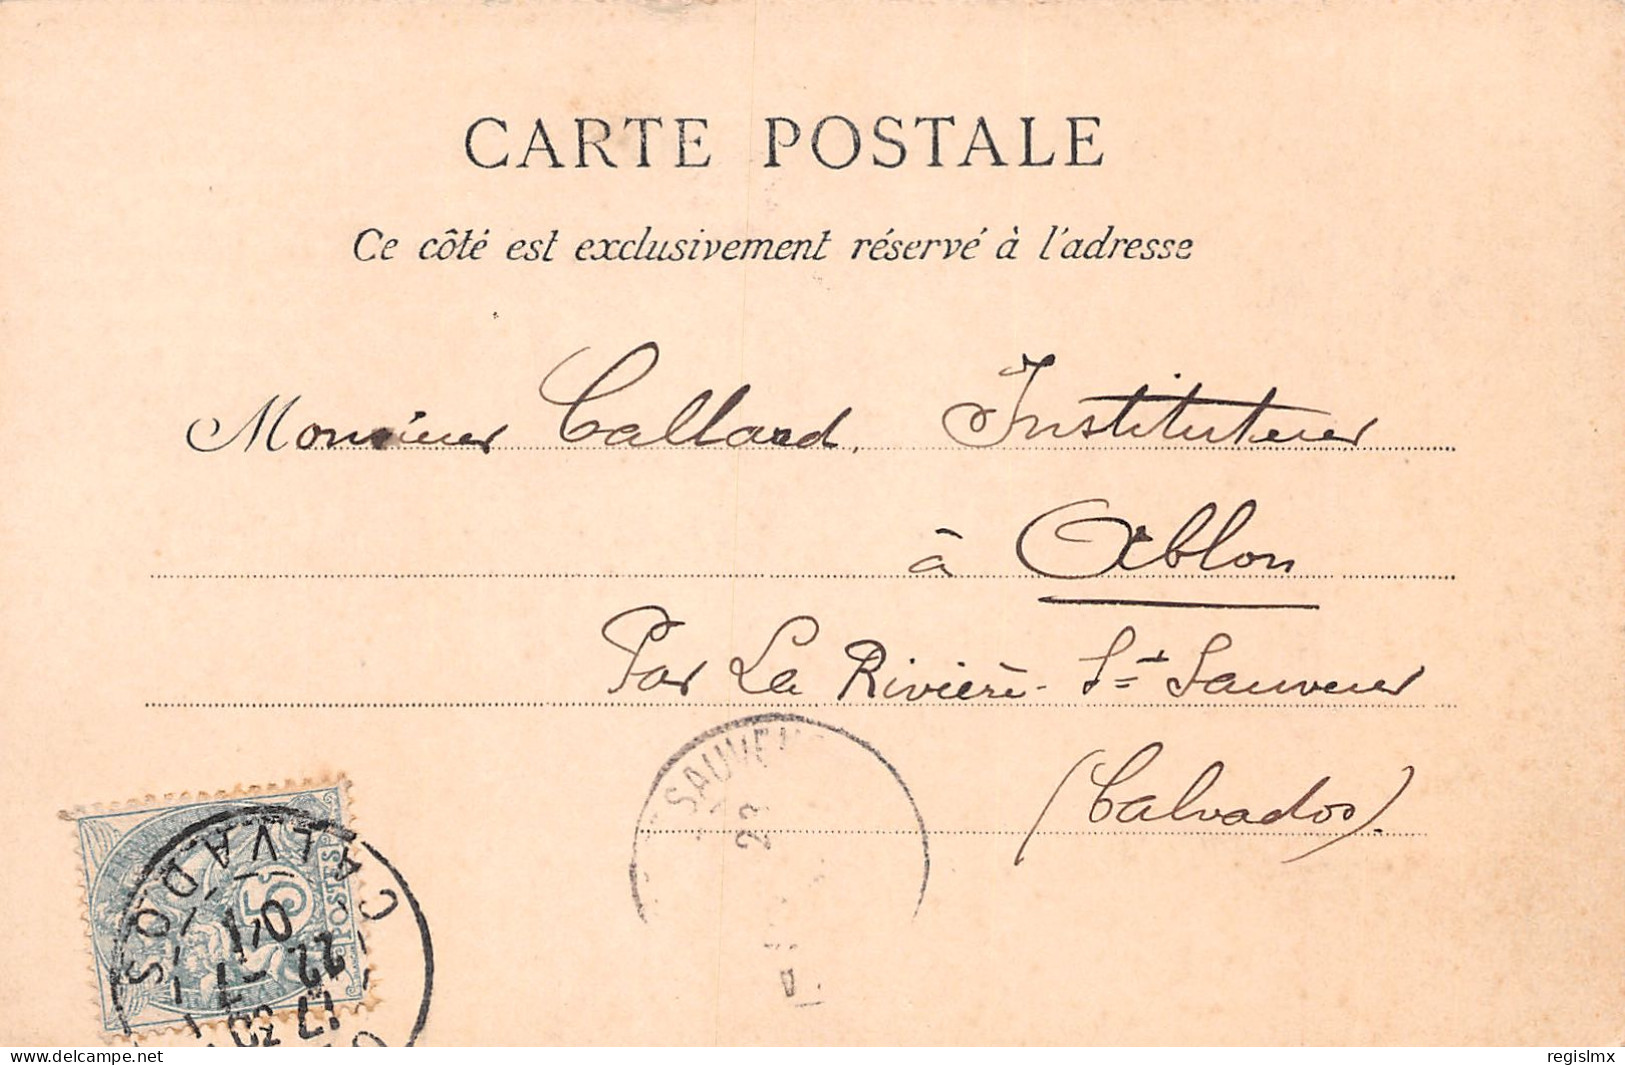 CARTE POSTALE
Ce côté est exclusivement réservé à l'adresse
Monsieur Callard, Instituteur
à Ablon
Par La Rivière-St Sauveur
(Calvados).
SAUVEU
22
5
POSTES
CALVADOS
17 30
22 -7
04
delcampe.net
regislmx